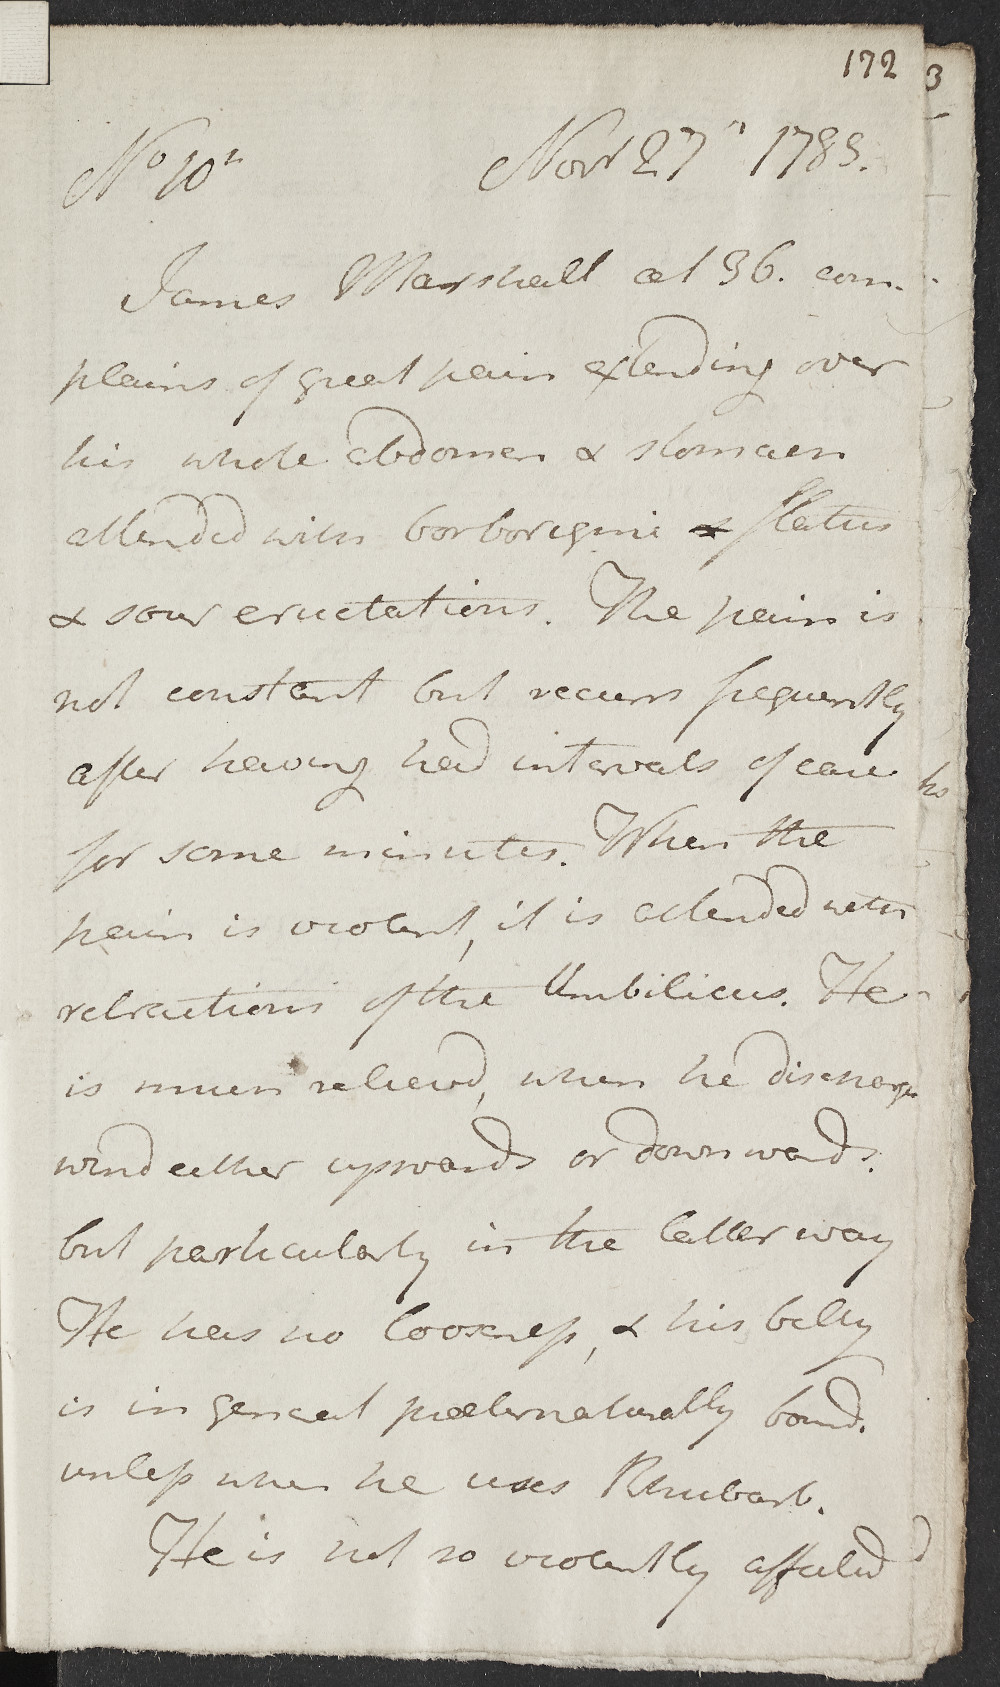 172
3
No 10th
Novr 27th 1783.
James Marshall æt 36. com-
plains of great pain extending over
his whole abdomen & stomach
attended with borborigmi & flatus
& sour eructations. The pain is
not constant but recurs frequently
after having had intervals of ease
for some minutes. When the
pain is violent, it is attended with
retractions of the Umbilicus. He
is much relieved, when he discharges
wind either upwards or downwards.
but particularly in the latter way
He has no looseness, & his belly
is in general præternaturally bound.
unless when he uses Rhubarb.
He is not so violently affected